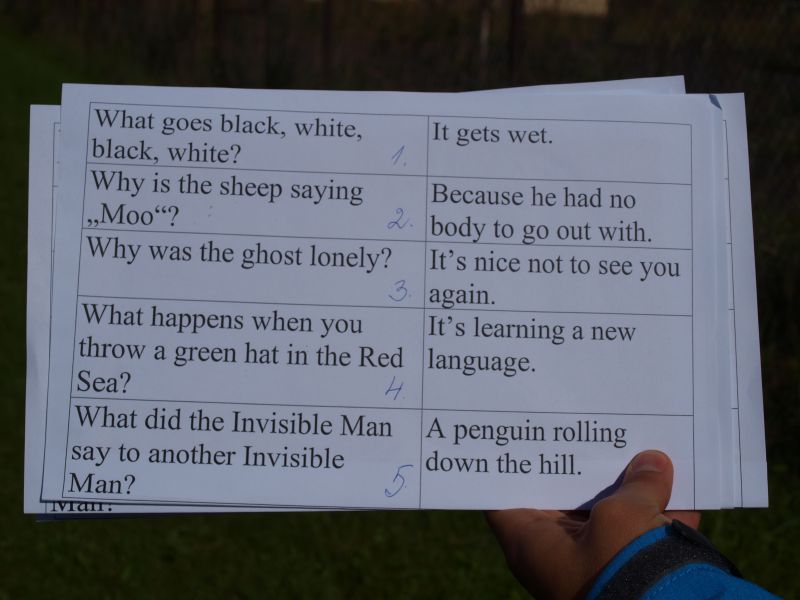 What goes black, white,
black, white?
1.
It gets wet.
Why is the sheep saying
„Moo“?
2.
Because he had no
body to go out with.
Why was the ghost lonely?
3.
It’s nice not to see you
again.
What happens when you
throw a green hat in the Red
Sea?
4.
It’s learning a new
language.
What did the Invisible Man
say to another Invisible
Man?
5.
A penguin rolling
down the hill.
Man?